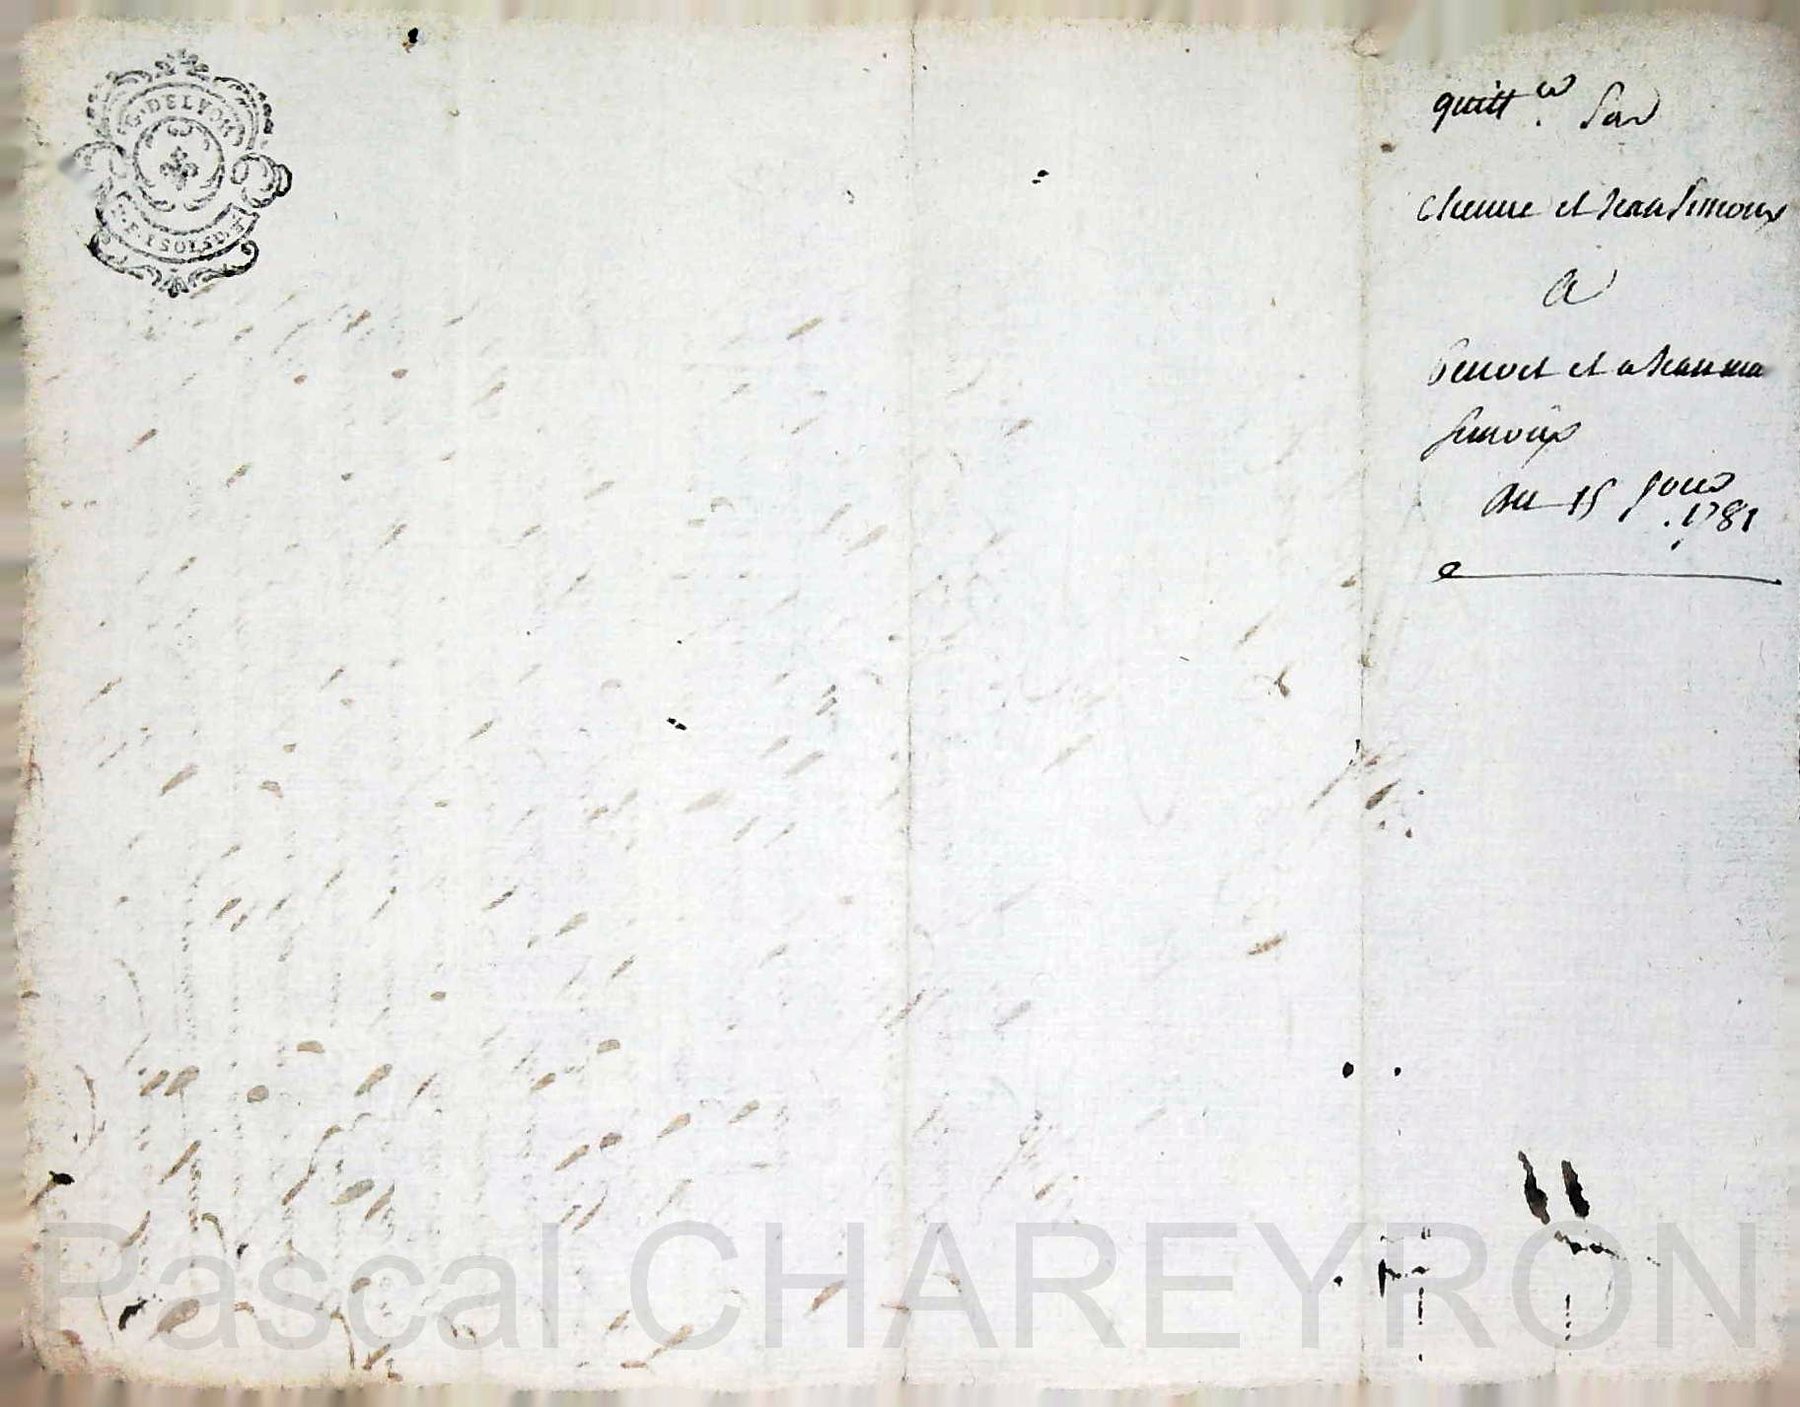 G. DE LYON
quitt.ce par
etienne et Jean Simoux
a
Benoit et a Jean ma
simoux
du 15
1781
Pascal CHAREYRON